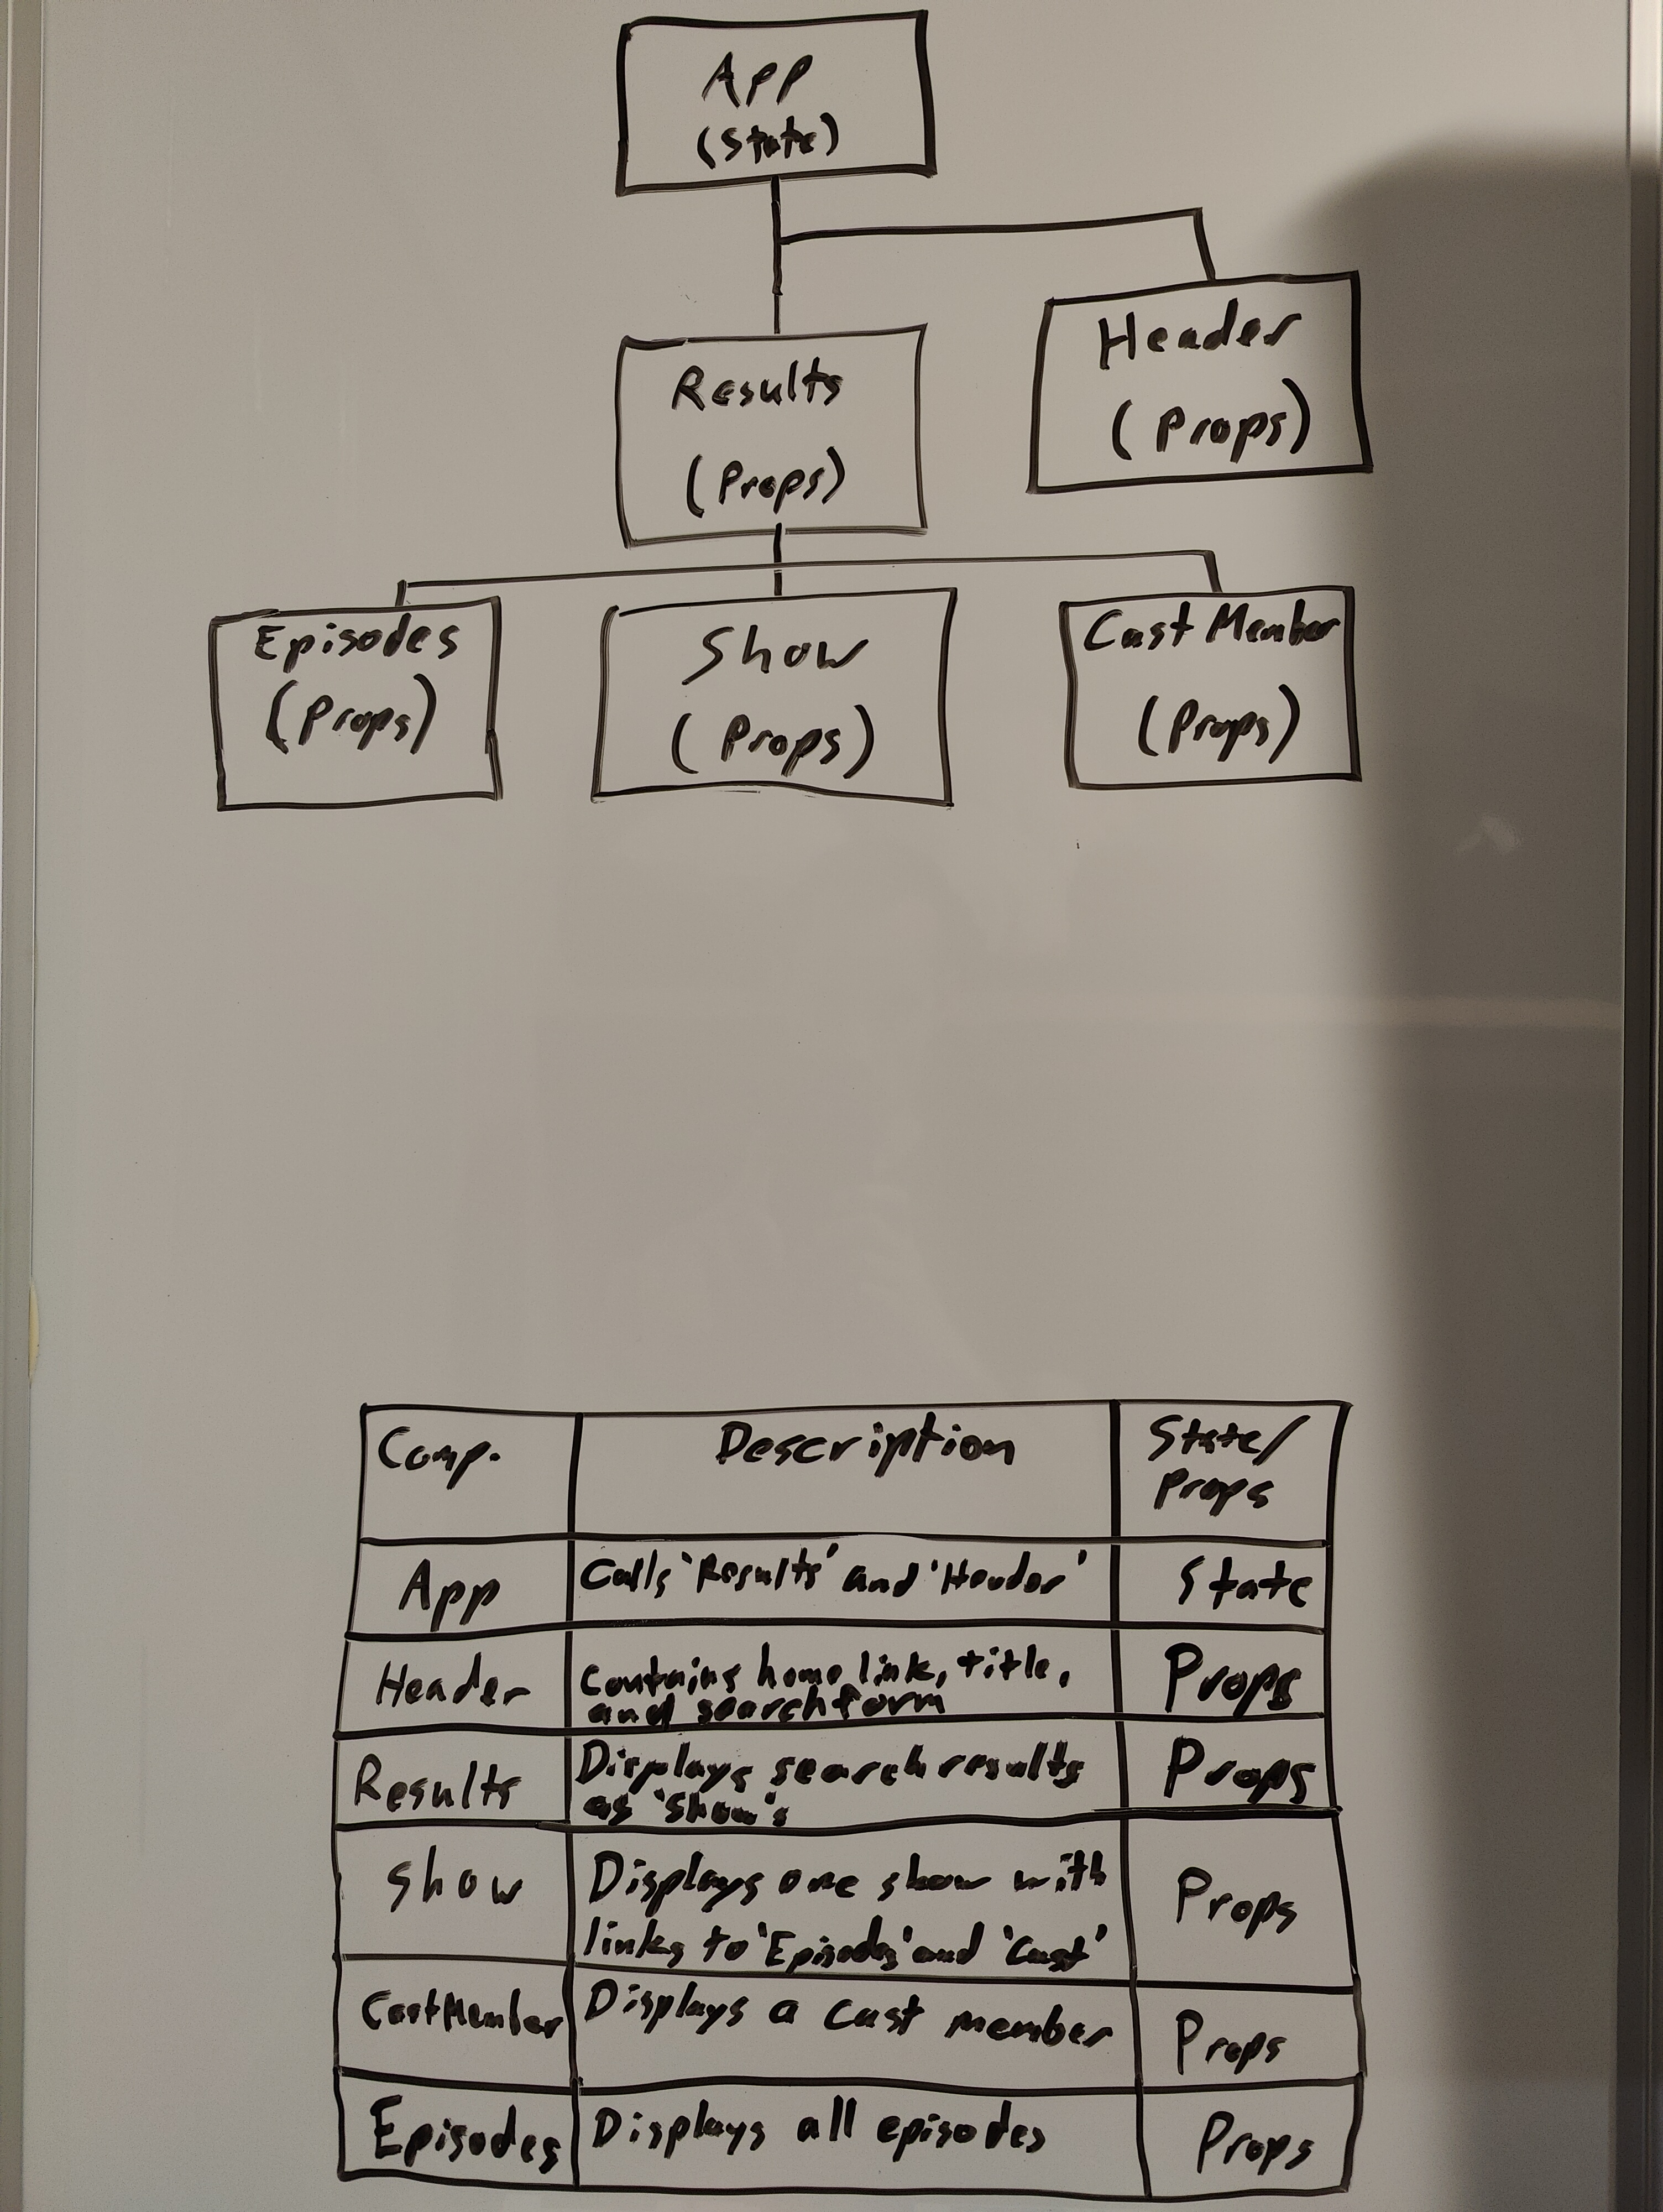 App
(State)
Header
(Props)
Results
(Props)
Episodes
(Props)
Show
(Props)
Cast Member
(Props)
Comp.
Description
State/
Props
App
Calls 'Results' and 'Header'
State
Header
Contains home link, title,
and search form
Props
Results
Displays search results
as 'Show's
Props
Show
Displays one show with
links to 'Episodes' and 'Cast'
Props
CastMember
Displays a cast member
Props
Episodes
Displays all episodes
Props